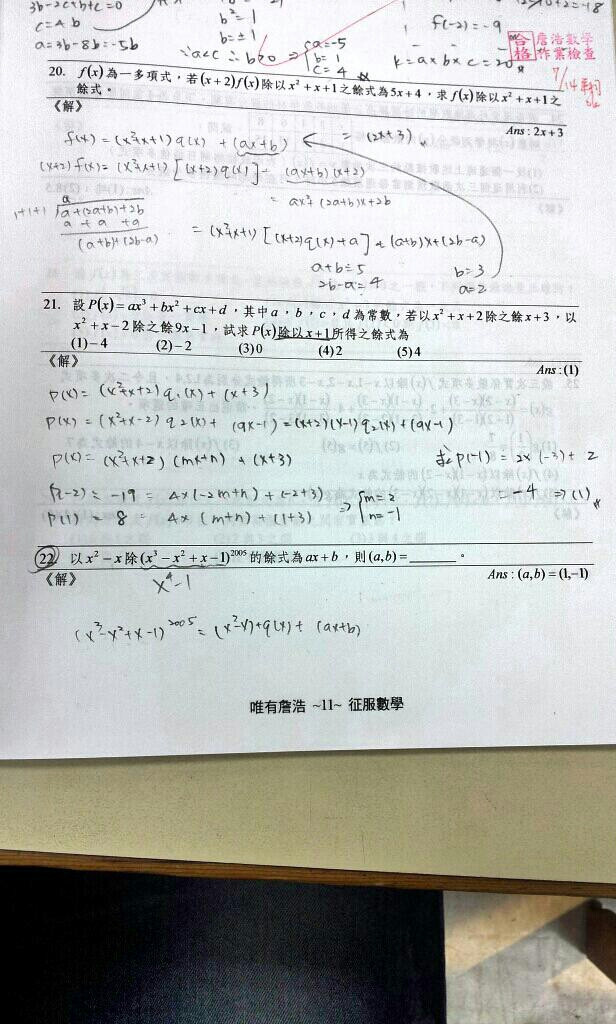 3b-2c+b+c=0
c=4b
a=3b-8b=-5b
b²=1
b=±1
∵a<c ∴b>0 ⇒ { a=-5
b=1
c=4
f(-2)=-9
k=a×b×c=-20
合格 詹浩數學
作業檢查
7/14
20. f(x)為一多項式,若(x+2)f(x)除以x²+x+1之餘式為5x+4,求f(x)除以x²+x+1之
餘式。
《解》
Ans:2x+3
f(x)=(x²+x+1)q(x)+(ax+b) = (2x+3)
(x+2)f(x)=(x²+x+1)[(x+2)q(x)]+(ax+b)(x+2)
=ax²+(2a+b)x+2b
a
1+1+1 a+(2a+b)+2b
a + a +a
(a+b)+(2b-a)
=(x²+x+1)[(x+2)q(x)+a]+(a+b)x+(2b-a)
a+b=5
2b-a=4
b=3
a=2
21. 設P(x)=ax³+bx²+cx+d,其中a,b,c,d為常數,若以x²+x+2除之餘x+3,以
x²+x-2除之餘9x-1,試求P(x)除以x+1所得之餘式為
(1)-4 (2)-2 (3)0 (4)2 (5)4
《解》
Ans:(1)
P(x)=(x²+x+2)q₁(x)+(x+3)
P(x)=(x²+x-2)q₂(x)+(9x-1)=(x+2)(x-1)q₂(x)+(9x-1)
P(x)=(x²+x+2)(mx+n)+(x+3)
求P(-1)=2×(-3)+2
f(-2)=-19=4×(-2m+n)+(-2+3)
P(1)=8=4×(m+n)+(1+3)
⇒ { m=2
n=-1
=-4 ⇒(1)
22. 以x²-x除(x³-x²+x-1)²⁰⁰⁵的餘式為ax+b,則(a,b)=______。
《解》
Ans:(a,b)=(1,-1)
x⁴-1
(x³-x²+x-1)²⁰⁰⁵=(x²-x)+q(x)+(ax+b)
唯有詹浩 ~11~ 征服數學